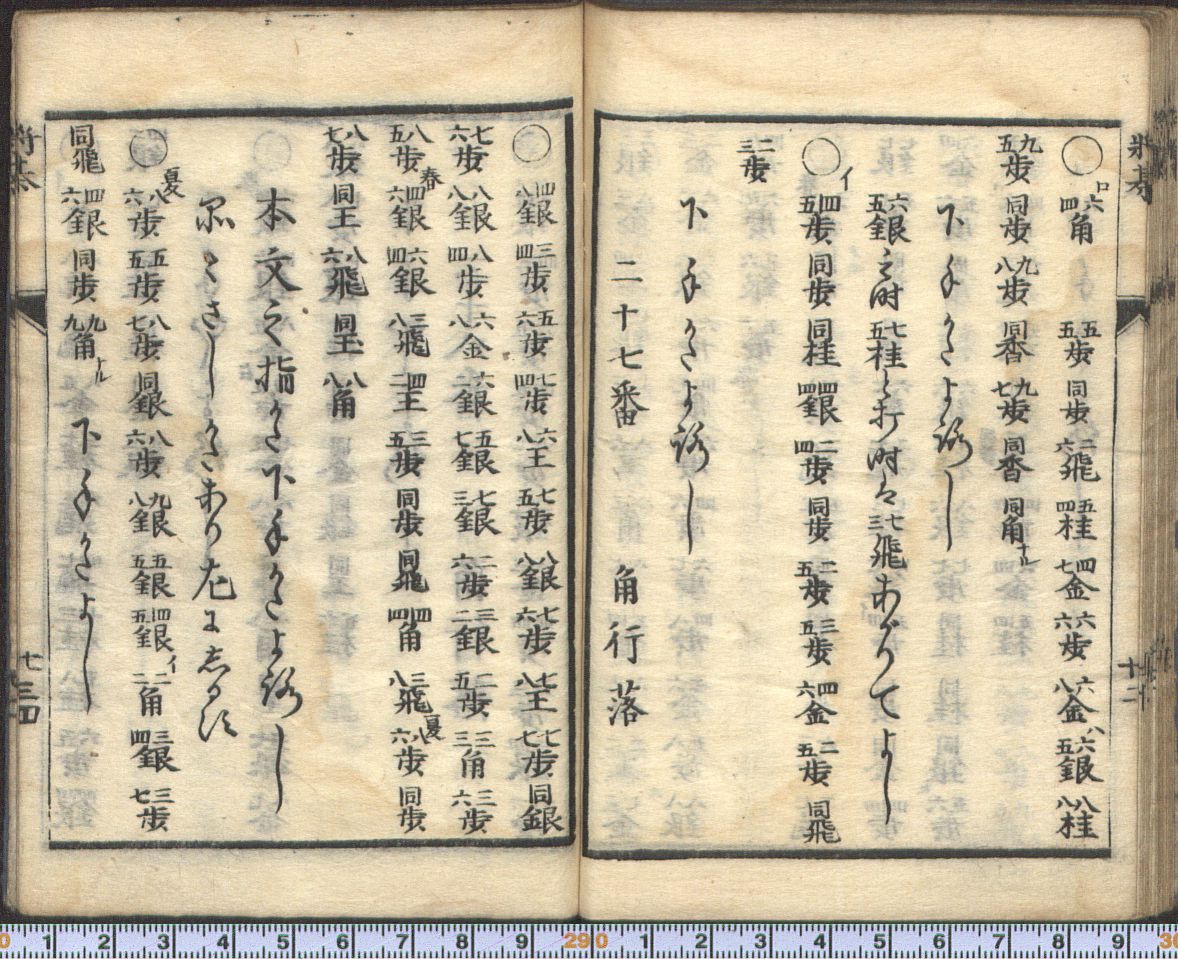 将棊
十二
○ロ六四角 五五歩 同歩 二六飛 五四桂 四七金 六六歩 六八金 ハ六五銀 八八桂
九五歩 同歩 九八歩 同香 九七歩 同香 同角ナル
下手かたよろし
六五銀之時七五桂と打時は七三飛あがりてよし
○イ四五歩 同歩 同桂 四四銀 二四歩 同歩 二五歩 三五歩 四六金 二五歩 同飛
二三歩
下手かたよろし
二十七番 角行落
○四八銀 三四歩 五六歩 七四歩 六八王 七五歩 八八銀 七六歩 七八王 七七歩 同銀
七六歩 八八銀 八四歩 六八金 六二銀 五七銀 七三銀 二六歩 三二銀 二五歩 三三角 三六歩
八五歩 春四六銀 六四銀 三八飛 四二王 三五歩 同歩 同飛 四四角 三八飛 夏八六歩 同歩
八七歩 同王 八六飛 同王 八八角
本文之指かた下手かたよろし
さしかたあり左にしるす
夏八六歩 五五歩 八七歩 同銀 八六歩 九八銀 五五銀 四五銀イ 二二角 三四銀 三七歩
同飛 四六銀 同歩 九九角ナル 下手かたよし
将棊